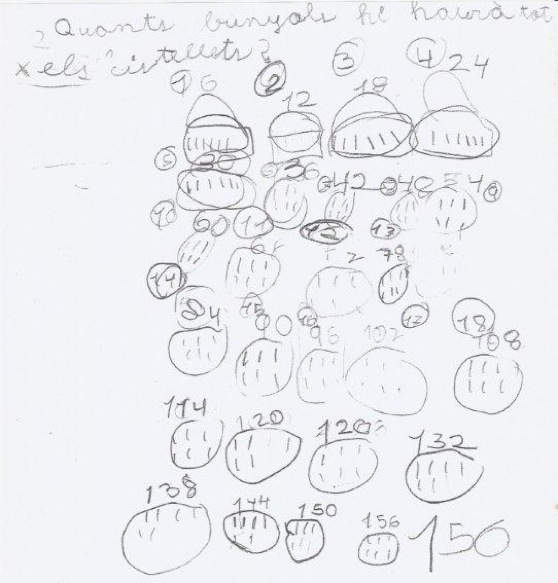 Quants bunyols hi haurà tot
els cistellets?
1 6 2 12 3 18 4 24
5 30 6 36 42 8 48 54 9
10 60 11 12 13
14 72 78
84 15 90 16 96 102 17 18 108
114 120 126 132
138 144 150 156 156